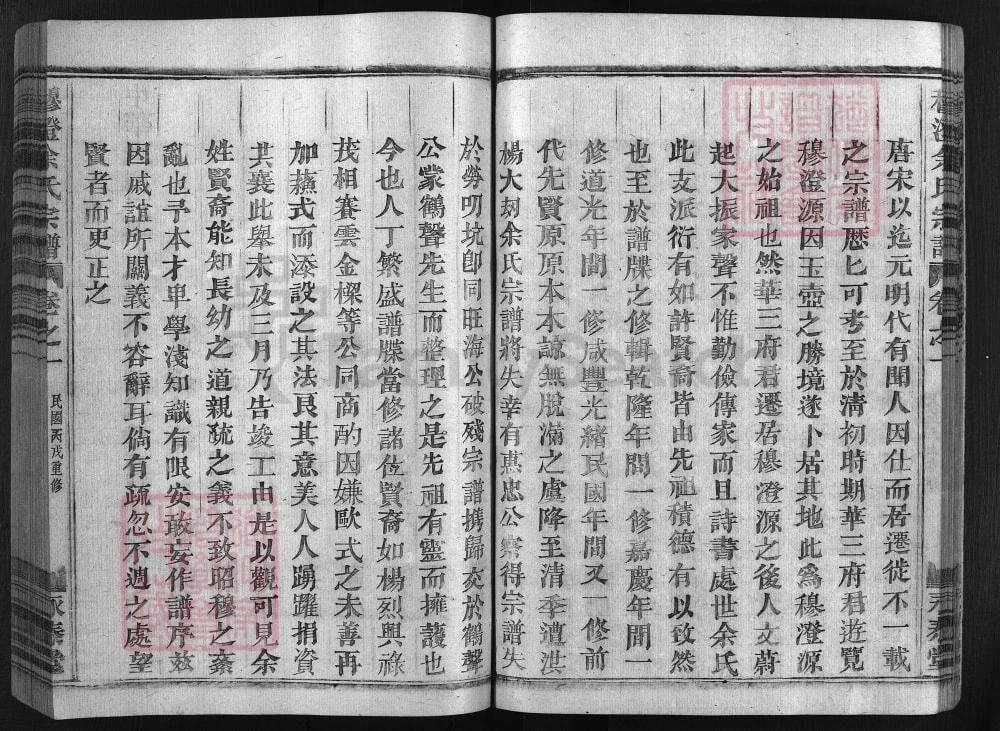 唐宋以迄元明代有聞人因仕而居遷徙不一載
之宗譜歷匕可考至於淸初時期華三府君遊覽
穆澄源因玉壺之勝境遂卜居其地此爲穆澄源
之始祖也然華三府君遷居穆澄源之後人文蔚
起大振家聲不惟勤儉傳家而且詩書處世余氏
此支派衍有如許賢裔皆由先祖積德有以致然
也至於譜牒之修輯乾隆年間一修嘉慶年間一
修道光年間一修咸豐光緒民國年間又一修前
代先賢原原本本諒無脫漏之虞降至清季遭洪
楊大刼余氏宗譜將失幸有惠忠公察得宗譜失
於勞叨坑卽同旺海公破殘宗譜携歸交於鶴聲
公蒙鶴聲先生而整理之是先祖有靈而擁護也
今也人丁繁盛譜牒當修諸位賢裔如楊烈興祿
茂相賽雲金樑等公同商酌因嫌歐式之未善再
加蘓式而添設之其法良其意美人人踴躍捐資
共襄此舉未及三月乃告竣工由是以觀可見余
姓賢裔能知長幼之道親疏之義不致昭穆之紊
亂也予本才卑學淺知識有限安敢妄作譜序茲
因戚誼所關義不容辭耳倘有疏忽不週之處望
賢者而更正之
穆澄余氏宗譜
卷之一
民國丙戌重修
永泰堂